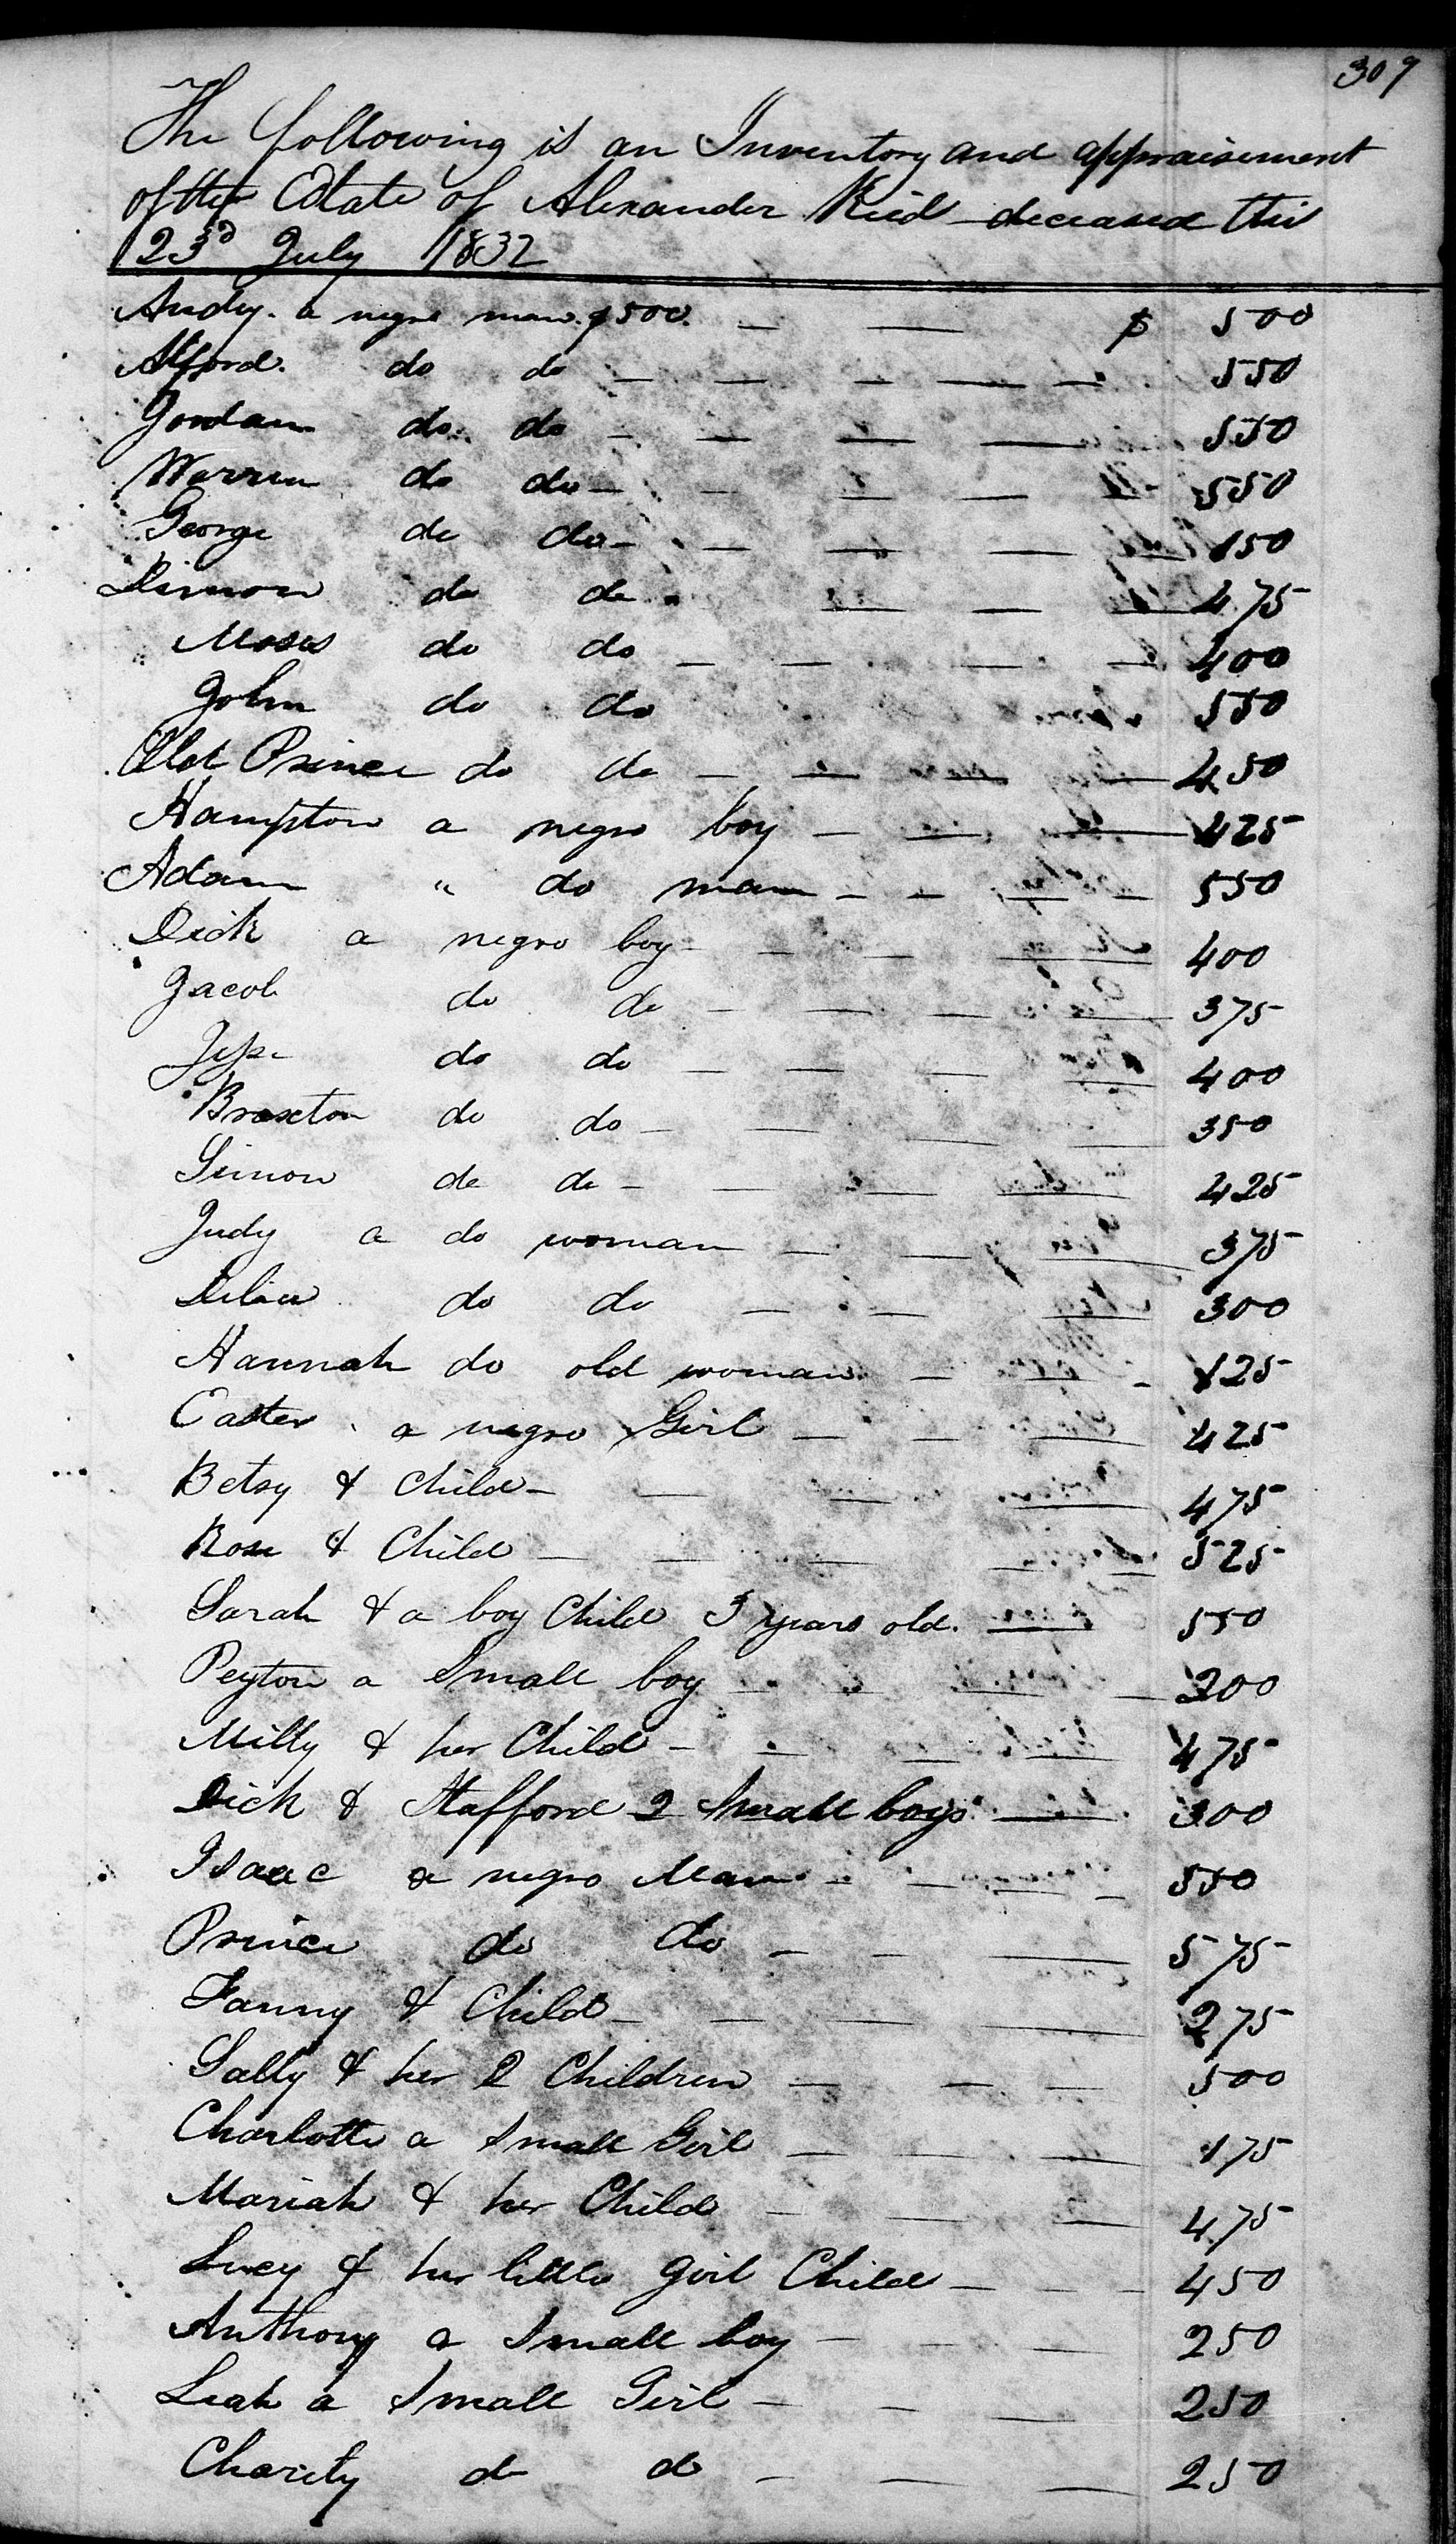 309
The following is an Inventory and appraisement
of the Estate of Alexander Reid deceased this
23d July 1832
Andy. a negro man. $500. $ 500
Alford. do do 550
Jordan do do 550
Warren do do 550
George do do 150
Simon do do 475
Moses do do 400
John do do 550
Prince do do 450
Hampton a negro boy 425
Adam " do man 550
Dick a negro boy 400
Jacob do do 375
Jesse do do 400
Braxton do do 350
Simon do do 425
Judy a do woman 375
do do 300
Hannah do old woman 125
Easter a negro Girl 425
Betsy & Child 475
Rose & Child 525
Sarah & a boy Child 3 years old. 550
Peyton a Small boy 200
Milly & her Child 475
Dick & Stafford 2 Small boys 300
Isaac a negro Man 550
Prince do do 575
Fanny & Child 275
Sally & her 2 Children 500
Charlotte a Small Girl 175
Mariah & her Child 475
Lucy & her little girl Child 450
Anthony a Small boy 250
Leah a Small Girl 250
Charity do do 250